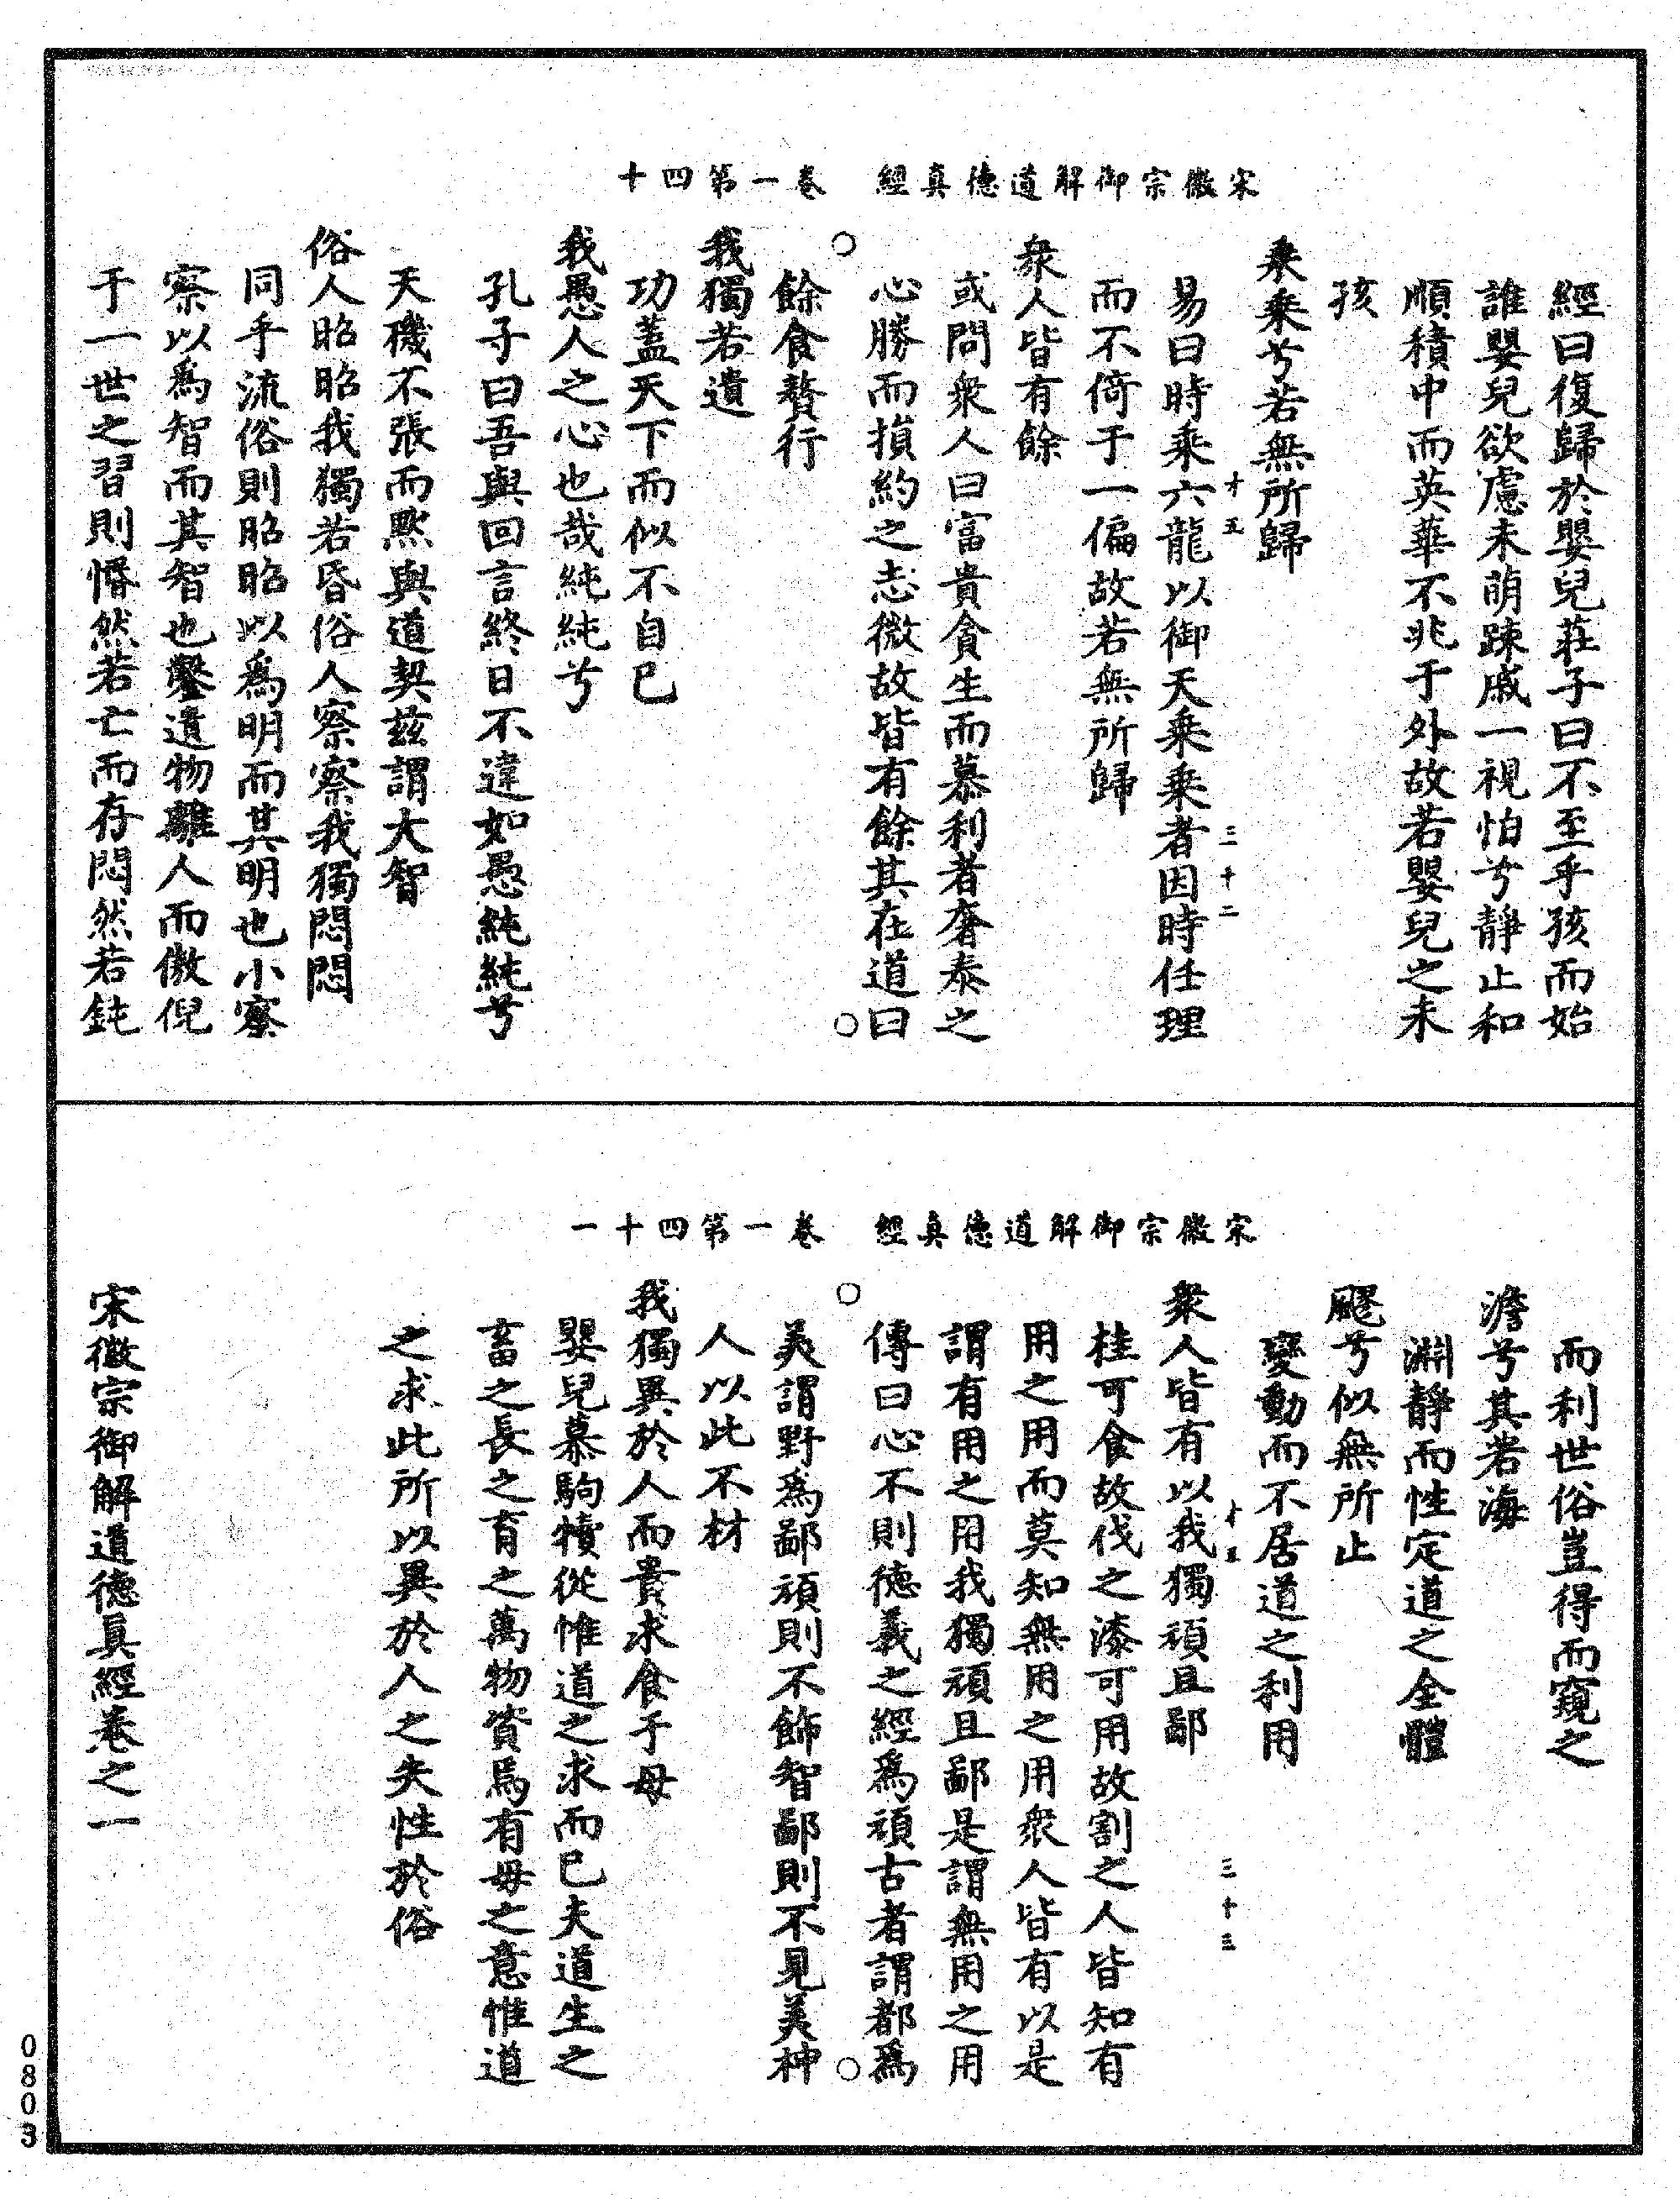 宋徽宗御解道德真經　卷一第四十
經曰復歸於嬰兒莊子曰不至乎孩而始
誰嬰兒欲慮未萌踈戚一視怕兮靜止和
順積中而英華不兆于外故若嬰兒之未
孩
乘乘兮若無所歸
十五　三十二
易曰時乘六龍以御天乘乘者因時任理
而不倚于一偏故若無所歸
衆人皆有餘
或問衆人曰富貴貪生而慕利者奢泰之
心勝而損約之志微故皆有餘其在道曰
餘食贅行
我獨若遺
功蓋天下而似不自已
我愚人之心也哉純純兮
孔子曰吾與回言終日不違如愚純純兮
天機不張而默與道契茲謂大智
俗人昭昭我獨若昏俗人察察我獨悶悶
同乎流俗則昭昭以爲明而其明也小察
察以爲智而其智也鑿遺物離人而傲倪
于一世之習則惛然若亡而存悶然若鈍
宋徽宗御解道德真經　卷一第四十一
而利世俗豈得而窺之
澹兮其若海
淵靜而性定道之全體
飂兮似無所止
變動而不居道之利用
十五　三十三
衆人皆有以我獨頑且鄙
桂可食故伐之漆可用故割之人皆知有
用之用而莫知無用之用衆人皆有以是
謂有用之用我獨頑且鄙是謂無用之用
傳曰心不則德義之經爲頑古者謂都爲
美謂野爲鄙頑則不飾智鄙則不見美神
人以此不材
我獨異於人而貴求食于母
嬰兒慕駒犢從惟道之求而已夫道生之
畜之長之育之萬物資焉有母之意惟道
之求此所以異於人之失性於俗
宋徽宗御解道德真經卷之一
0803